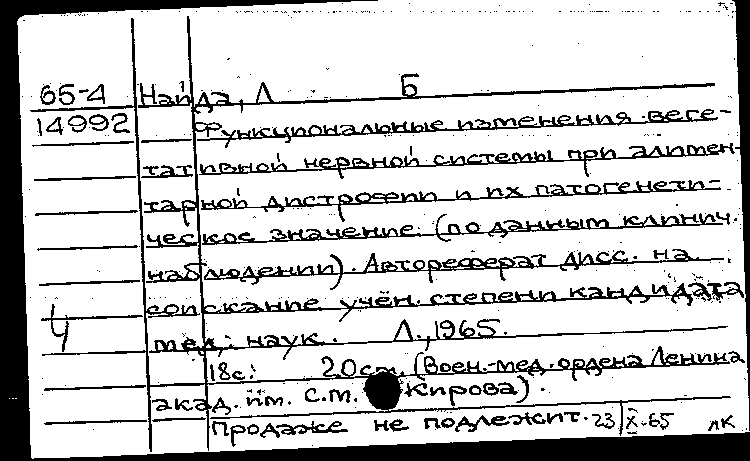 65-4 Найда, Л Б
14992 Функциональные изменения веге-
тативной нервной системы при алимен-
тарной дистрофии и их патогенети-
ческое значение. (по данным клинич.
наблюдений). Автореферат дисс. на
соискание учён. степени кандидата
мед. наук. Л., 1965.
18с. 20см. (Воен.-мед. ордена Ленина
акад. им. С.М. Кирова).
Продаже не подлежит. 23/X-65 лк
Ч